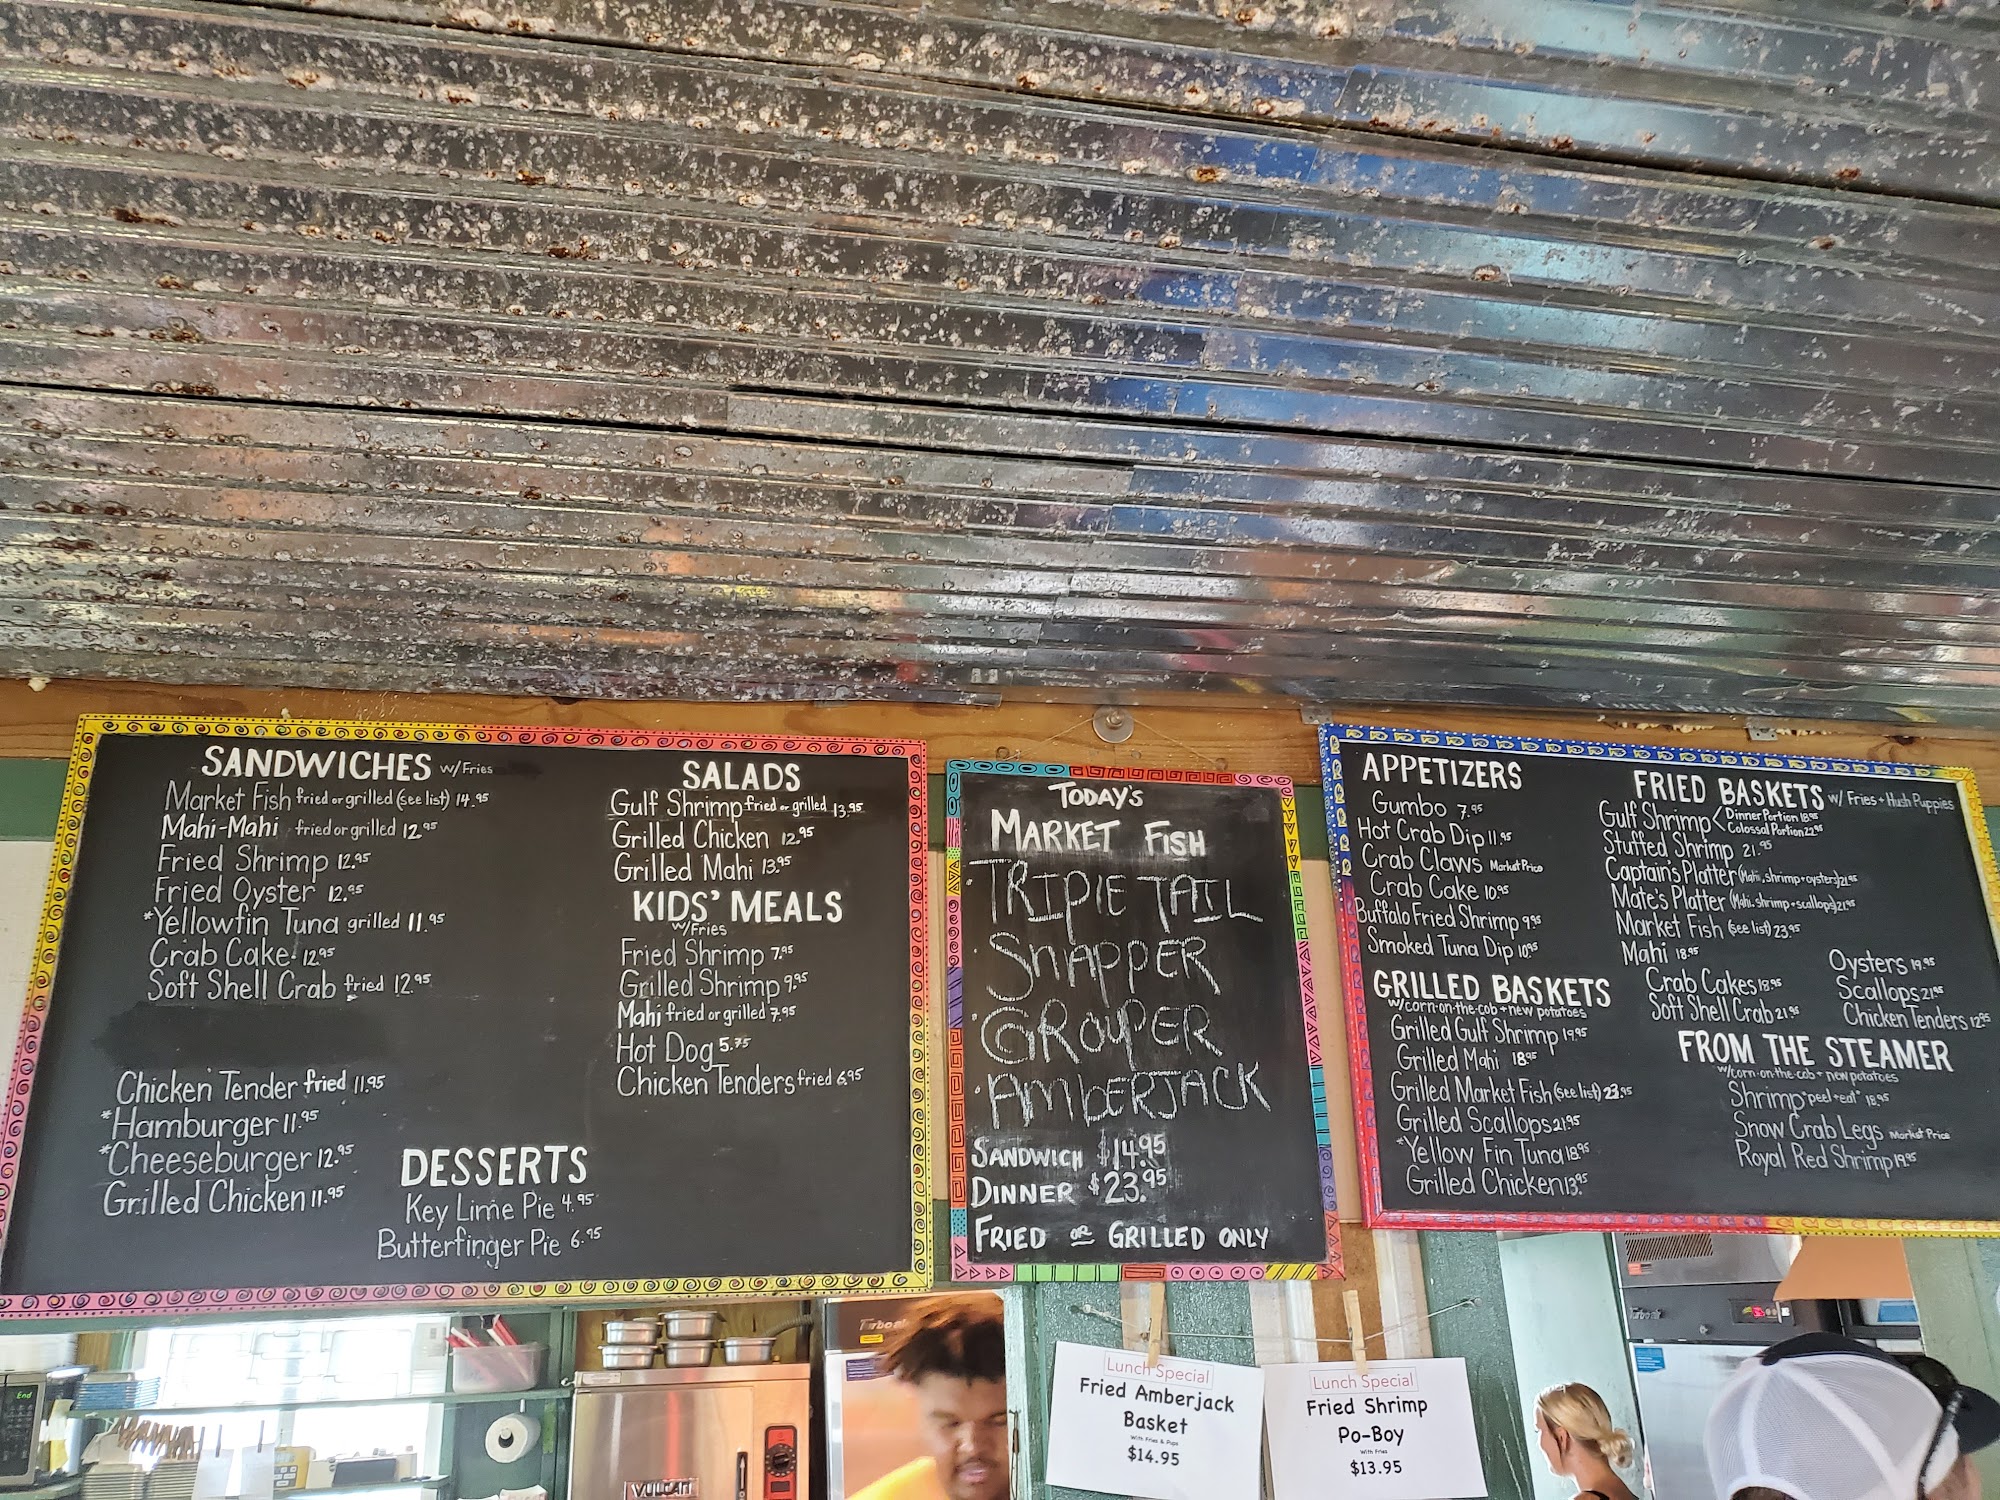 SANDWICHES w/Fries
Market Fish fried or grilled (see list) 14.95
Mahi-Mahi fried or grilled 12.95
Fried Shrimp 12.95
Fried Oyster 12.95
*Yellowfin Tuna grilled 11.95
Crab Cake 12.95
Soft Shell Crab fried 12.95
Chicken Tender fried 11.95
*Hamburger 11.95
*Cheeseburger 12.95
Grilled Chicken 11.95
DESSERTS
Key Lime Pie 4.95
Butterfinger Pie 6.95
SALADS
Gulf Shrimp fried or grilled 13.95
Grilled Chicken 12.95
Grilled Mahi 13.95
KIDS' MEALS
w/Fries
Fried Shrimp 7.95
Grilled Shrimp 9.95
Mahi fried or grilled 7.95
Hot Dog 5.75
Chicken Tenders fried 6.95
TODAY'S
MARKET FISH
TRIPLE TAIL
SNAPPER
GROUPER
AMBERJACK
SANDWICH $14.95
DINNER $23.95
FRIED OR GRILLED ONLY
APPETIZERS
Gumbo 7.95
Hot Crab Dip 11.95
Crab Claws Market Price
Crab Cake 10.95
Buffalo Fried Shrimp 9.95
Smoked Tuna Dip 10.95
GRILLED BASKETS
w/corn-on-the-cob + new potatoes
Grilled Gulf Shrimp 19.95
Grilled Mahi 18.95
Grilled Market Fish (see list) 23.95
Grilled Scallops 21.95
*Yellow Fin Tuna 18.95
Grilled Chicken 13.95
FRIED BASKETS w/ Fries + Hush Puppies
Gulf Shrimp < Dinner Portion 18.95
Colossal Portion 22.95
Stuffed Shrimp 21.95
Captain's Platter (Mahi, shrimp + oysters) 21.95
Mate's Platter (Mahi, shrimp + scallops) 21.95
Market Fish (see list) 23.95
Mahi 18.95
Crab Cakes 18.95
Soft Shell Crab 21.95
Oysters 19.95
Scallops 21.95
Chicken Tenders 12.95
FROM THE STEAMER
w/corn-on-the-cob + new potatoes
Shrimp "peel + eat" 18.95
Snow Crab Legs Market Price
Royal Red Shrimp 19.95
Lunch Special
Fried Amberjack
Basket
With Fries & Pups
$14.95
Lunch Special
Fried Shrimp
Po-Boy
With Fries
$13.95
VULCAN
End